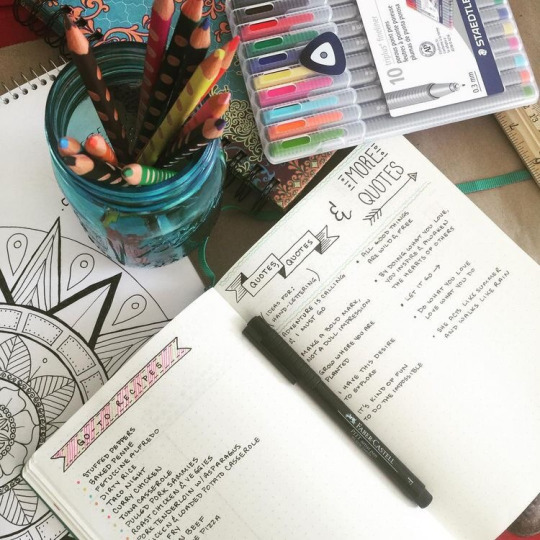 GO-TO RECIPES
STUFFED PEPPERS
BAKED PENNE
FETTUCINE ALFREDO
DIRTY RICE
TACO NIGHT
CURRY CHICKEN
TUNA CASSEROLE
PULLED PORK SAMMIES
ROAST CHICKEN & VEGGIES
PORK TENDERLOIN W/ASPARAGUS
CHICKEN & LOADED POTATO CASSEROLE
FRY
BEEF
PIZZA
QUOTES, QUOTES
& MORE
QUOTES
(IDEAS FOR:
HAND-LETTERING)
ADVENTURE IS CALLING
& I MUST GO
MAKE A BOLD MARK,
NOT A DULL IMPRESSION
GROW WHERE YOU ARE
PLANTED
I HAVE THIS DESIRE
TO EXPLORE
IT'S KIND OF FUN
TO DO THE IMPOSSIBLE
• ALL GOOD THINGS
ARE WILD & FREE
• BY DOING WHAT YOU LOVE,
YOU INSPIRE & AWAKEN
THE HEARTS OF OTHERS
• LET IT GO →
• DO WHAT YOU LOVE
LOVE WHAT YOU DO
• SHE ACTS LIKE SUMMER
AND WALKS LIKE RAIN
FABER-CASTELL
PITT
STAEDTLER
triplus fineliner
10
0.3 mm